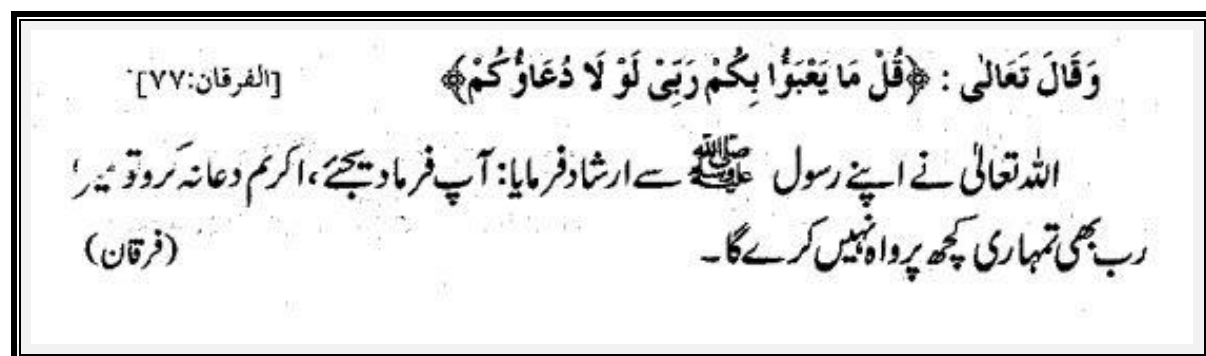 وَقَالَ تَعَالٰى : ﴿قُلْ مَا يَعْبَؤُا بِكُمْ رَبِّىْ لَوْ لَا دُعَاؤُكُمْ﴾ [الفرقان:٧٧]
اللہ تعالیٰ نے اپنے رسول ﷺ سے ارشاد فرمایا: آپ فرما دیجئے، اگر تم دعا نہ کرو تو میرا
رب بھی تمہاری کچھ پرواہ نہیں کرے گا۔ (فرقان)